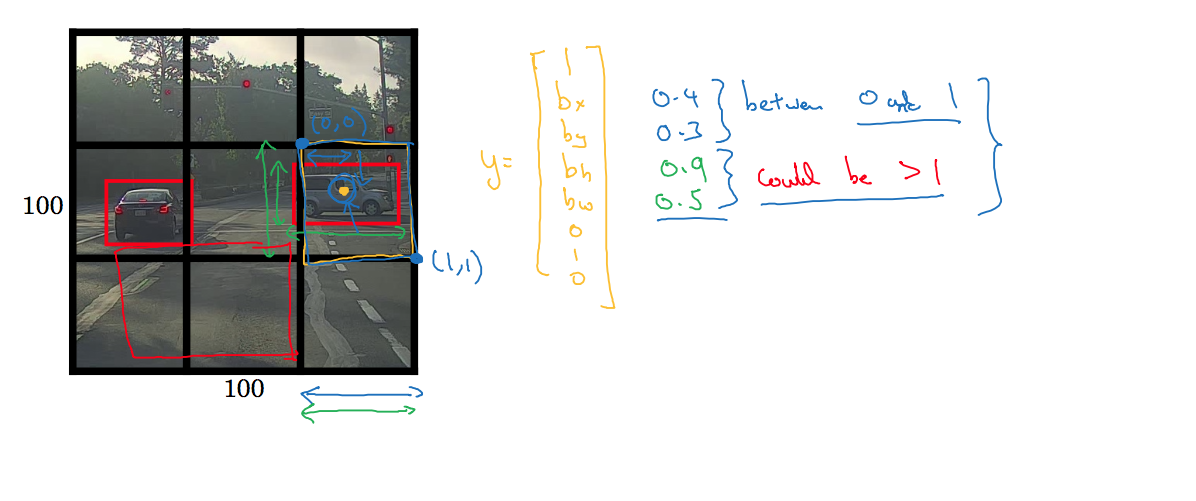 (0,0)
100
(1,1)
100
y=
1
bx
by
bh
bw
0
1
0
0.4
0.3
between 0 and 1
0.9
0.5
could be > 1